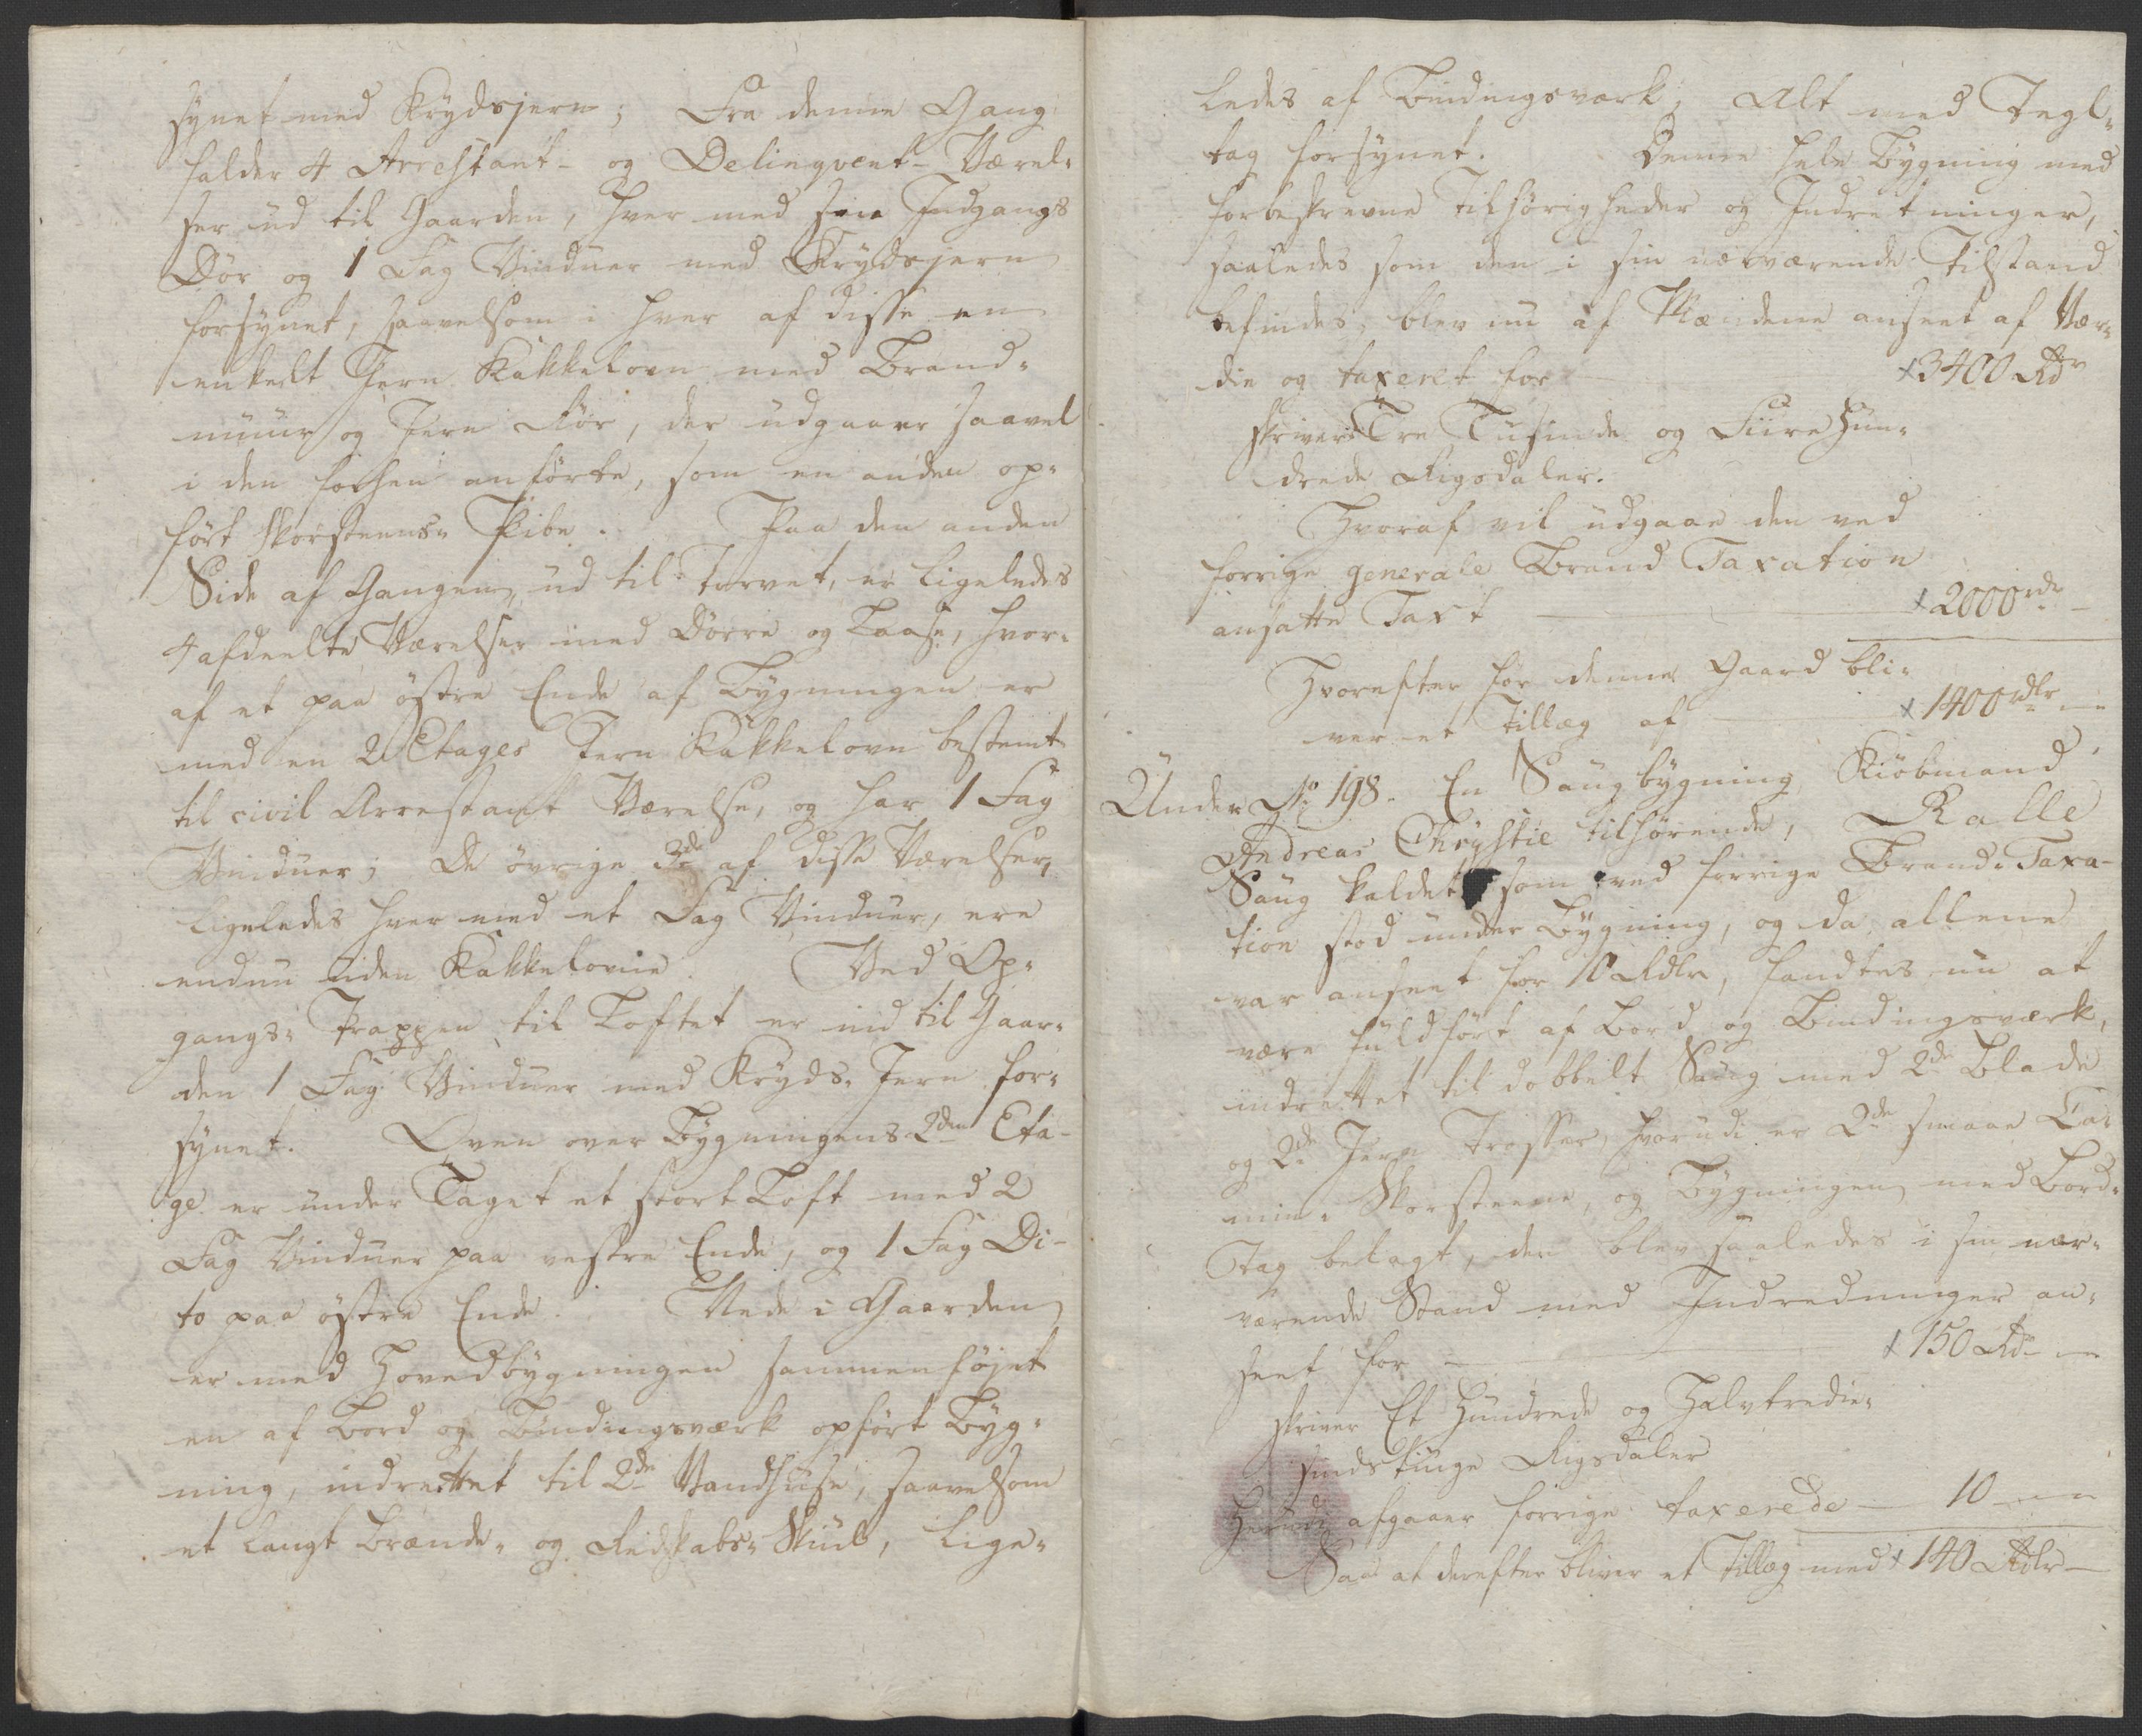 synet med Krydsjern; Fra denne Gang
falder 4 Arrestant- og Delinqvent-Værel-
ser ud til Gaarden, hver med sin Indgangs
Dör og 1 Fag Vinduer med Krydsjern
forsynet, saavelsom i hver af disse en
enkelt Jern Kakkelovn med Brand-
muur og Jern Rör, der udgaaer saavel
i den forhen anförte, som en anden op-
fört Skorsteens-Pibe. Paa den anden
Side af Gangen, ud til Torvet, er ligeledes
4 afdeelte Værelser med Dörre og Laase, hvor-
af et paa östre Ende af Bygningen er
med en 2 Etages Jern Kakkelovn bestemt
til civil Arrestant Værelse, og har 1 Fag
Vinduer; De övrige 3de af disse Værelser,
ligeledes hver med et Fag Vinduer, ere
endnu uden Kakkelovne. Ved Op-
gangs-Trappen til Loftet er ind til Gaar-
den 1 Fag Vinduer med Kryds-Jern for-
synet. Oven over Bygningens 2den Eta-
ge er under Taget et stort Loft med 2
Fag Vinduer paa vestre Ende, og 1 Fag Di-
to paa östre Ende. Nede i Gaarden
er med Hovedbygningen sammenföjet
en af Bord og Bindingsværk opfört Byg-
ning, indrettet til 2de Vandhuse, saavelsom
et langt Brænde- og Redskabs-Skuul, lige-
ledes af Bindingsværk; Alt med Tegl-
tag forsynet. Denne hele Bygning med
forbeskrevne Tilhörigheder og Indretninger,
saaledes som den i sin nærværende Tilstand
befindes, blev nu af Mændene anseet af Vær-
die og taxeret for 3400 Rdr
skriver Tre Tusinde og Fiire Hun-
drede Rigsdaler.
Hvoraf vil udgaae den ved
forrige generale Brand Taxation
ansatte Taxt 2000 rdr
Hvorefter for denne Gaard bli-
ver et Tillæg af 1400 rdlr
Under No 198. En Saugbygning Kiöbmand
Andreas Chrystie tilhörende, Kalle
Saug kaldet som ved forrige Brand-Taxa-
tion stod under Bygning, og da allene
var anseet for 10 Rdlr, fandtes nu at
være fuldfört af Bord og Bindingsværk,
indrettet til dobbelt Saug med 2de Blade
og 2de Jern Trosser, hvorudi er 2de smaae Ca-
min-Skorsteene, og Bygningen med Bord-
Tag belagt, den blev saaledes i sin nær-
værende Stand med Indredninger an-
seet for 150 Rdr
skriver Et Hundrede og Halvtredie-
sindstiuge Rigsdaler
Herudi afgaaer forrige taxerede 10
Saa at derefter bliver et Tillæg med 140 Rdlr